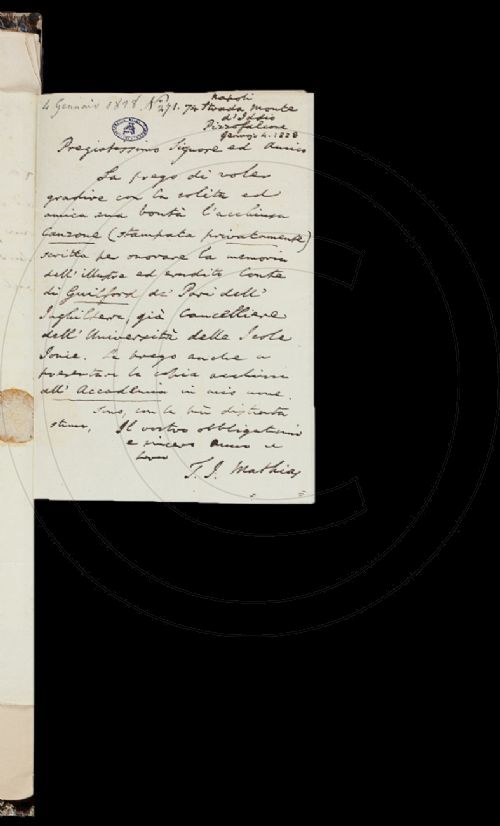 4 Gennaio 1828 No. 271. 74 Strada Monte
Napoli
d'Iddio
Pizzofalcone
Pregiatissimo Signore ed Amico
La prego di voler
gradire con la solita ed
amica sua bontà l'acchiusa
Canzone (stampata privatamente)
scritta per onorare la memoria
dell' illustre ed erudito Conte
di Guilford de' Pari dell'
Inghilterra, già Cancelliere
dell' Università delle Isole
Ionie. La prego anche a
presentare la copia acchiusa
all' Accademia in mio nome.
Sono, con la più distinta
stima, Il vostro obbligatissimo
e sincero amico e
servo
T. J. Mathias